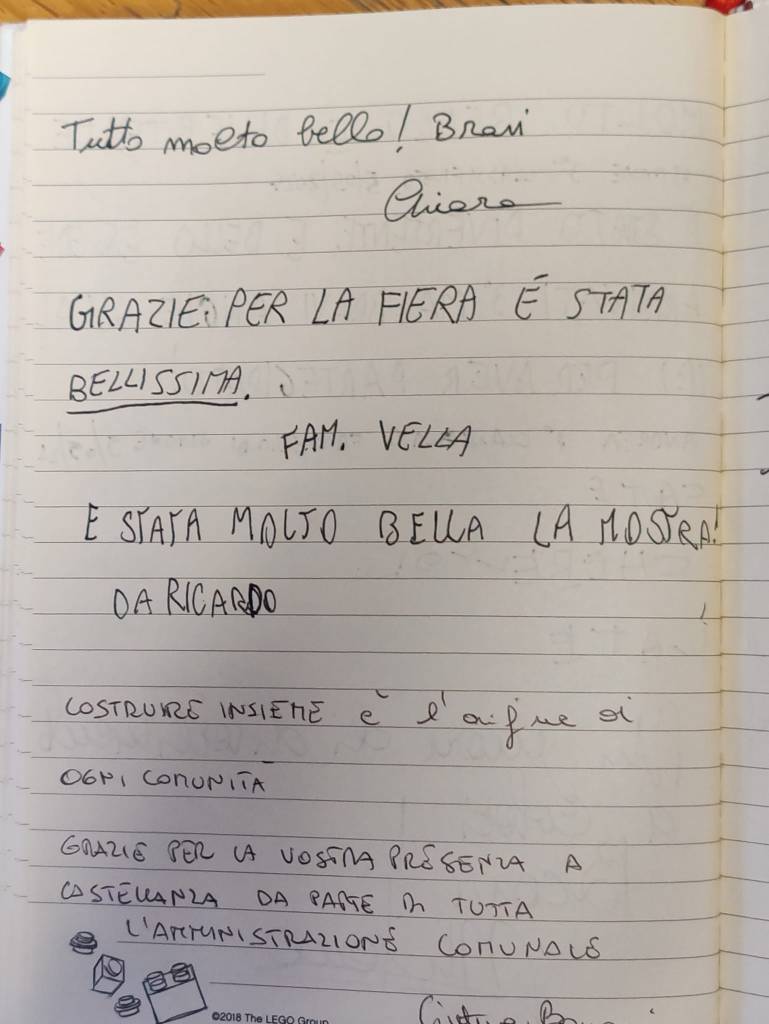 Tutto molto bello! Bravi
Chiara
GRAZIE PER LA FIERA É STATA
BELLISSIMA.
FAM. VELLA
E STATA MOLTO BELLA LA MOSTRA!
DA RICARDO
COSTRUIRE INSIEME è l'origine di
OGNI COMUNITÀ
GRAZIE PER LA VOSTRA PRESENZA A
CASTELLANZA DA PARTE DI TUTTA
L'AMMINISTRAZIONE COMUNALE
©2018 The LEGO Group